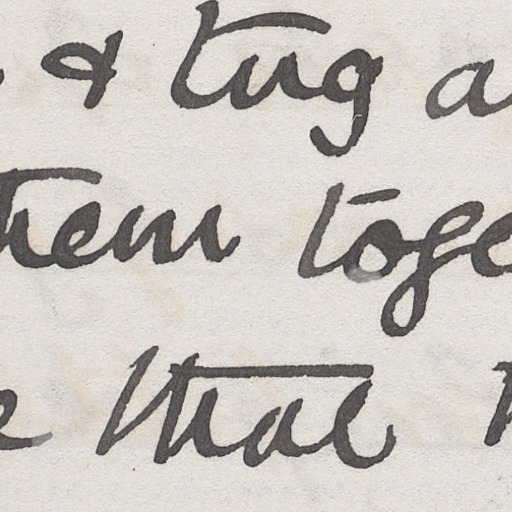 & tug a
them toge
that